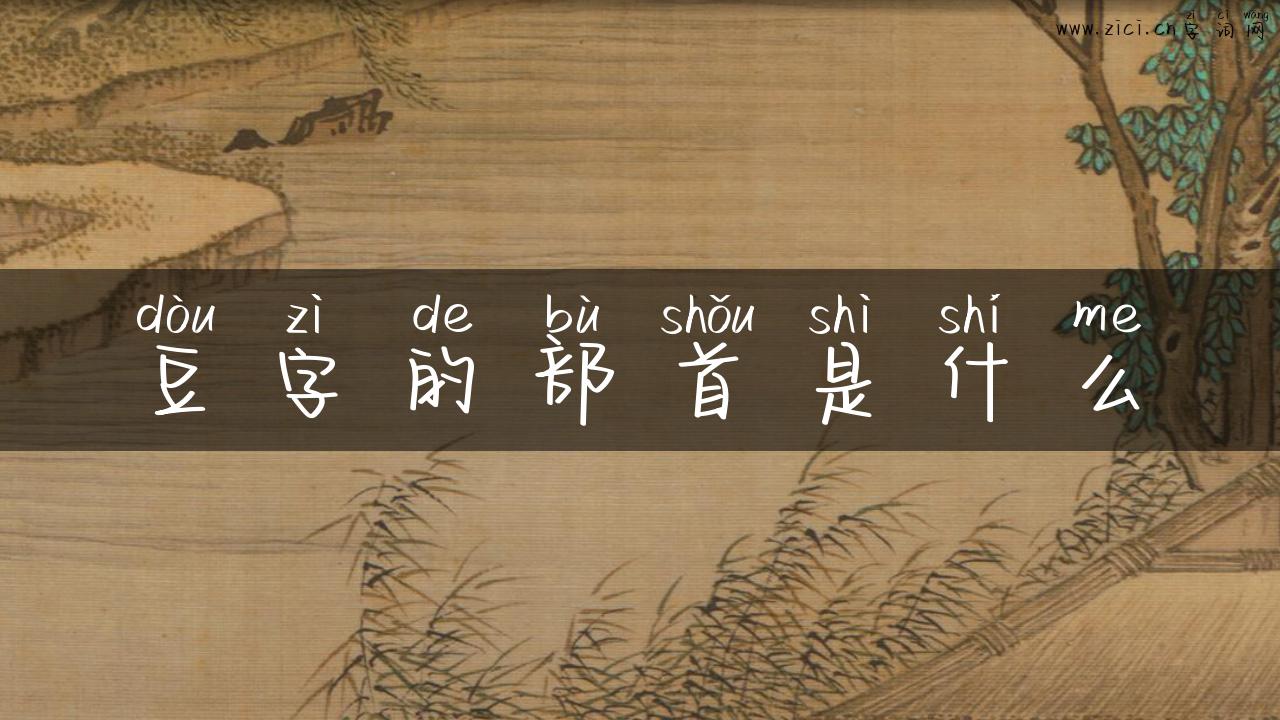 zì cí wǎng
www.zici.cn字词网
dòu zì de bù shǒu shì shí me
豆字的部首是什么